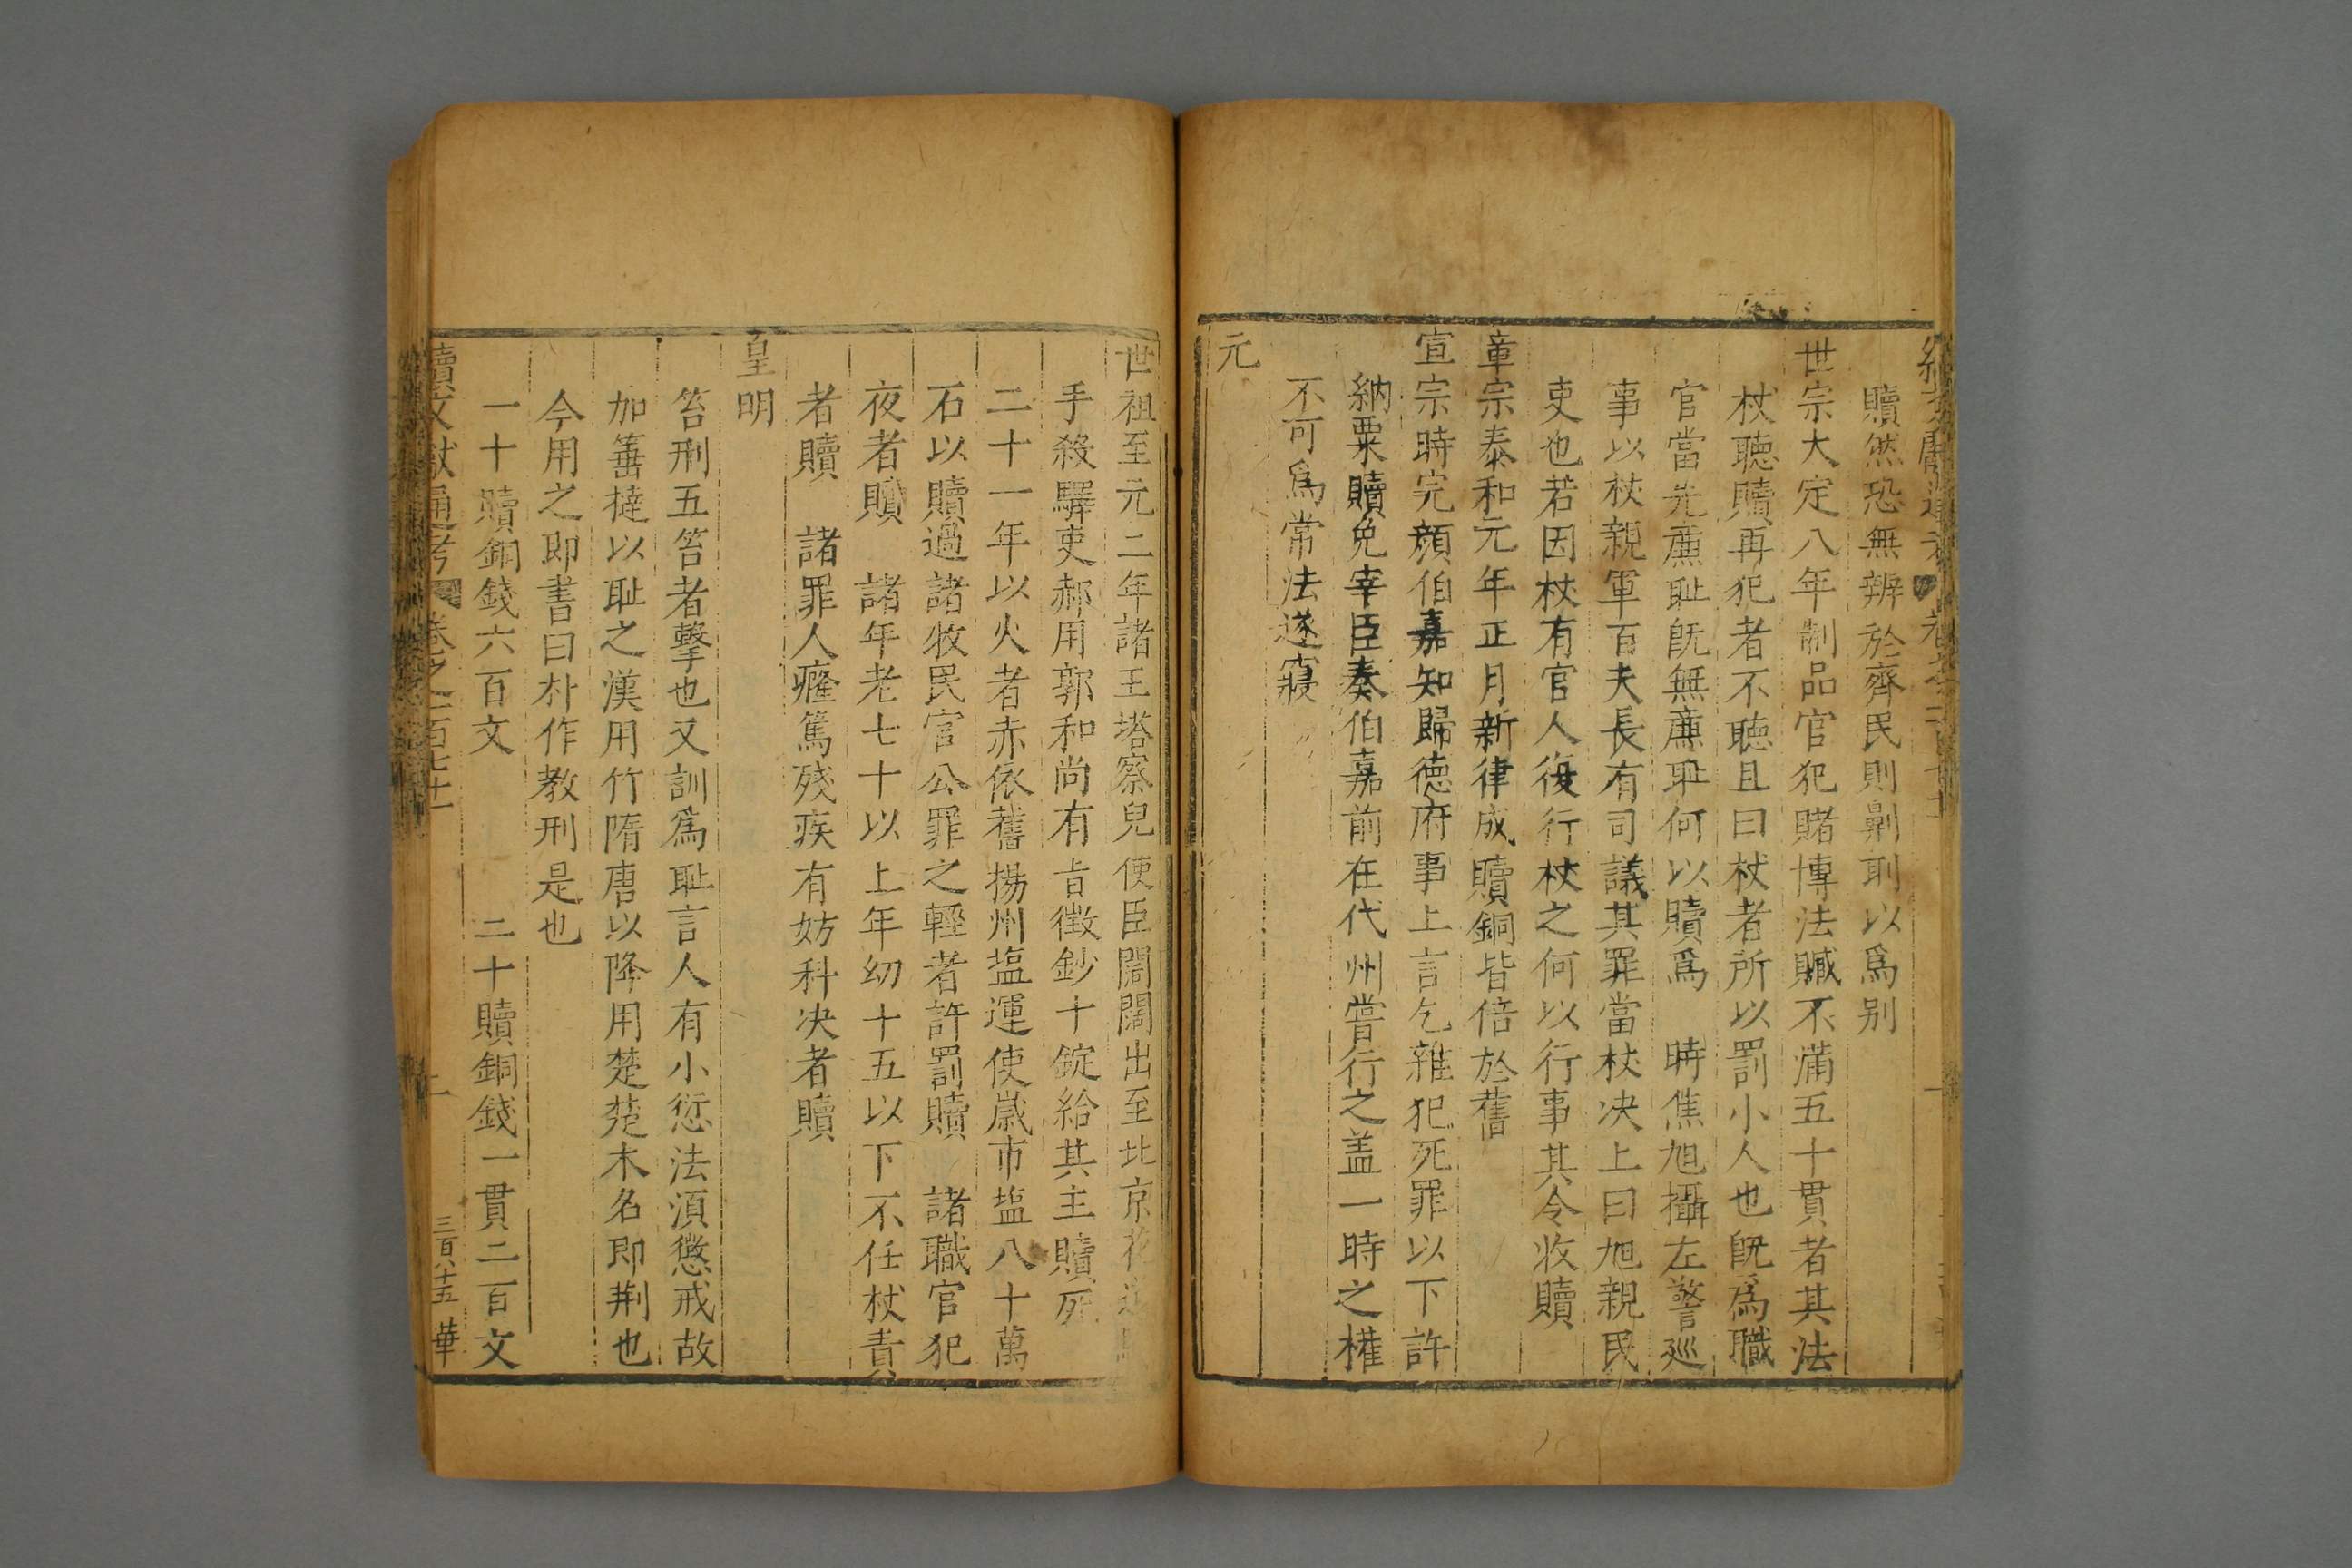 贖然恐無辨於齊民則劓刵以爲别
世宗大定八年制品官犯賭博法贓不滿五十貫者其法
杖聴贖再犯者不聴且曰杖者所以罰小人也旣爲職
官當先亷耻旣無亷耻何以贖爲　時僬旭攝左警廵
事以杖親軍百夫長有司議其罪當杖决上曰旭親民
吏也若因杖有官人復行杖之何以行事其令收贖
章宗泰和元年正月新律成贖銅皆倍於舊
宣宗時完顔伯嘉知歸徳府事上言乞雜犯死罪以下許
納粟贖免宰臣奏伯嘉前在代州嘗行之盖一時之權
不可爲常法遂寢
元
世祖至元二年諸王塔察兒使臣闊闊出至北京花道驛
手殺驛吏郝用郭和尚有㫖徴鈔十錠給其主贖死
二十一年以火者赤依舊揚州塩運使嵗市塩八十萬
石以贖過諸牧民官公罪之輕者許罰贖　諸職官犯
夜者贖　諸年老七十以上年幼十五以下不任杖責
者贖　諸罪人癃篤殘疾有妨科决者贖
皇明
笞刑五笞者擊也又訓爲耻言人有小愆法須懲戒故
加箠撻以耻之漢用竹隋唐以降用楚楚木名即荆也
今用之即書曰朴作教刑是也
一十贖銅錢六百文　二十贖銅錢一貫二百文
續文獻通考　卷之一百七十一　三百八十五　華